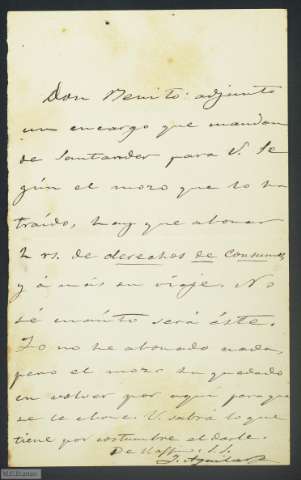 Don Benito: adjunto
un encargo que mandan
de Santander para V. Se
gún el mozo que lo ha
traído, hay que abonar
2 rs. de derechos de consumos,
y á más su viaje. No
sé cuánto será éste.
Yo no he abonado nada,
pero el mozo ha quedado
en volver por aquí para que
se le abone. V. sabrá lo que
tiene por costumbre el darle.
De V. affmo. S. S.
J. Aguilar